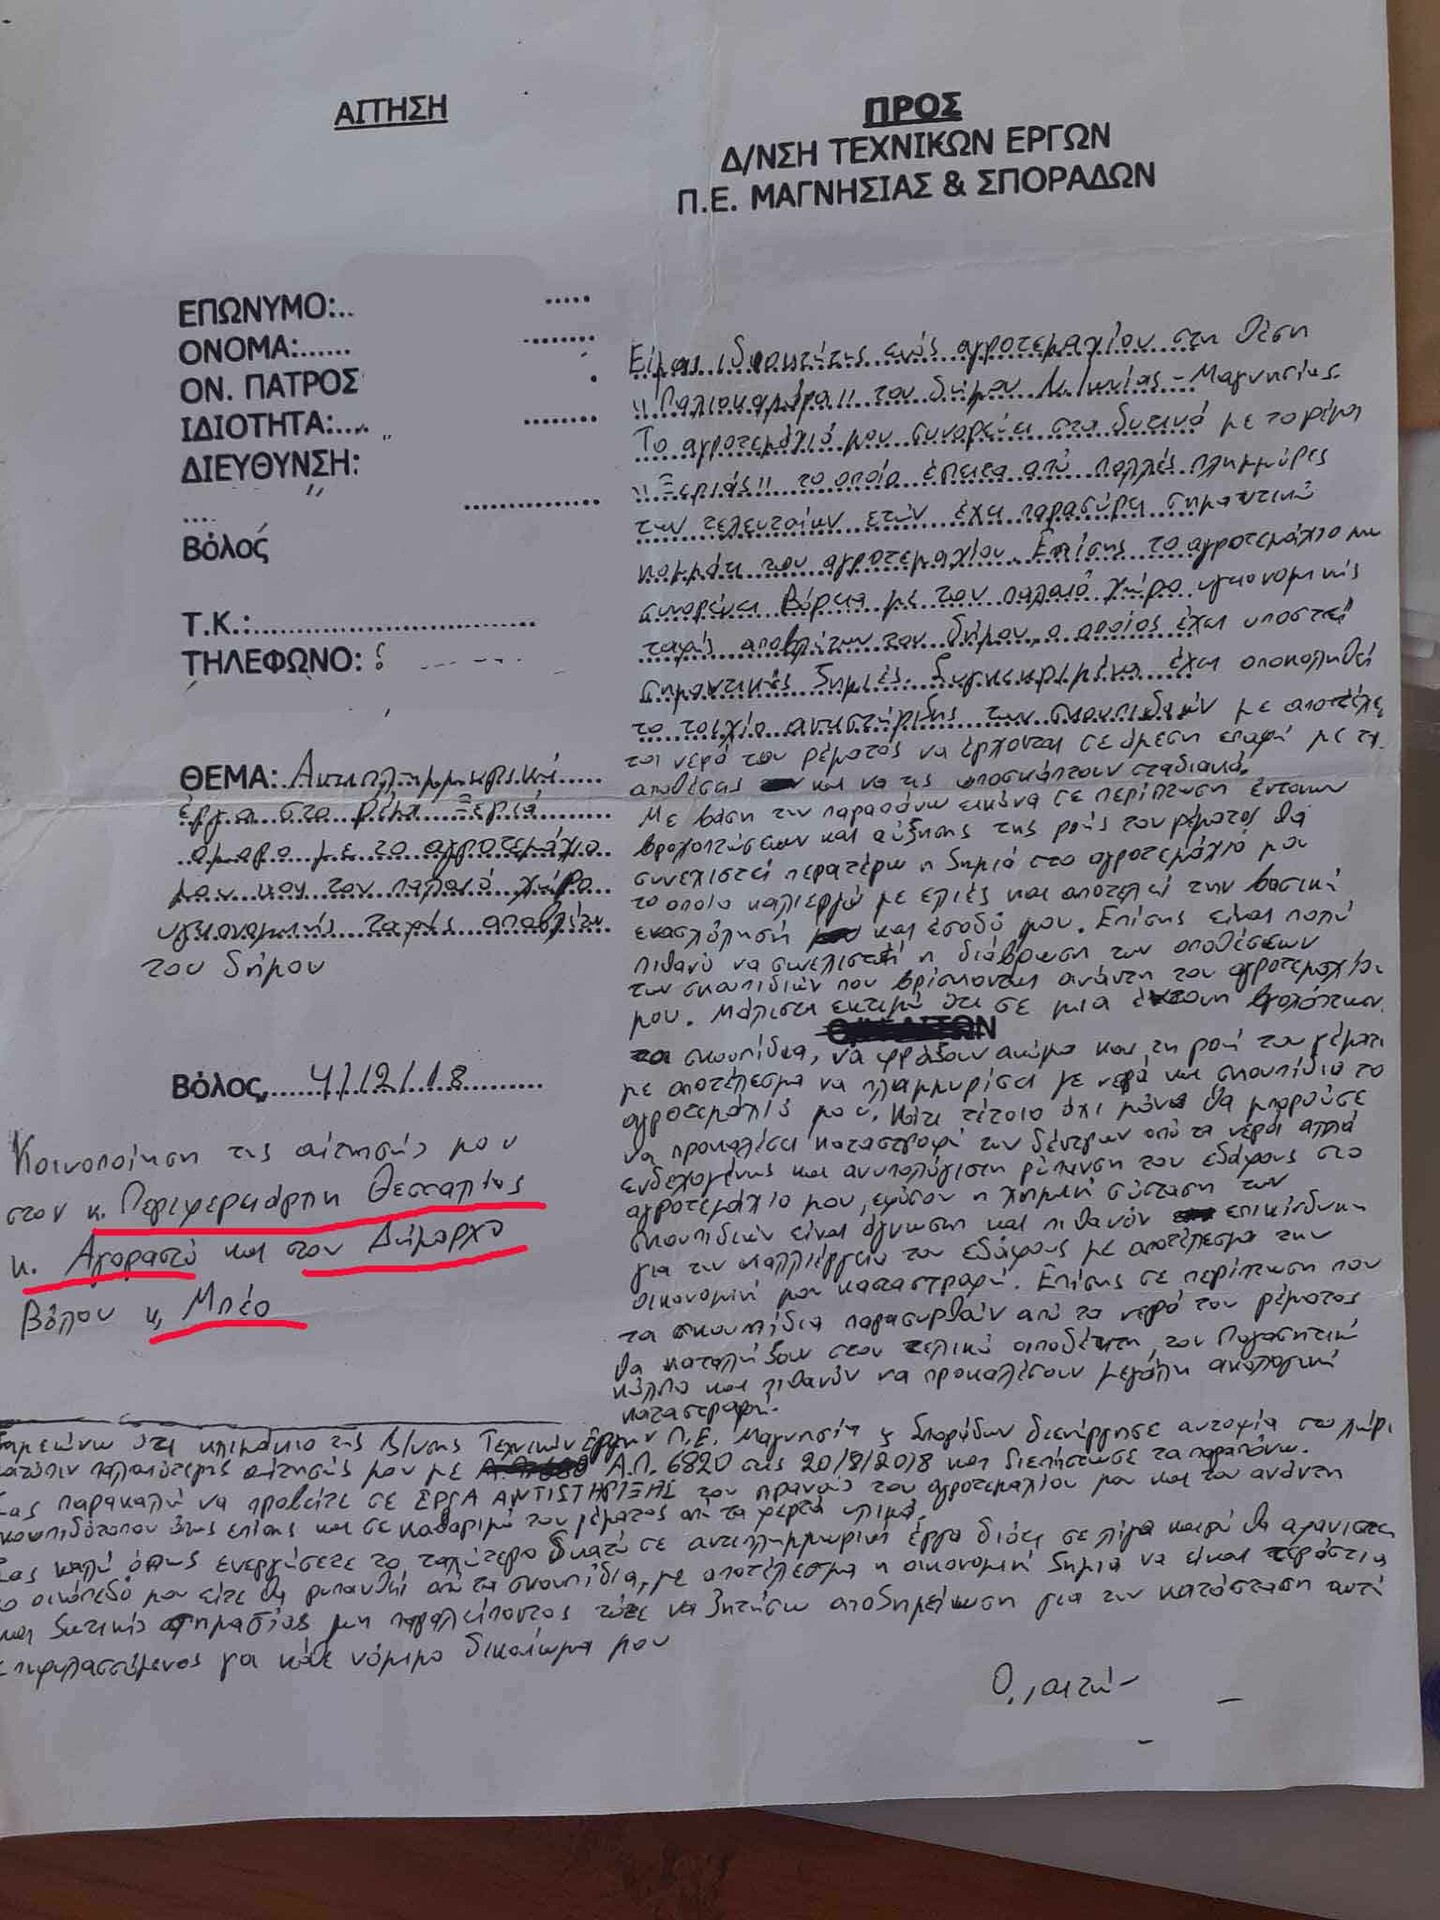 ΑΙΤΗΣΗ
ΠΡΟΣ
Δ/ΝΣΗ ΤΕΧΝΙΚΩΝ ΕΡΓΩΝ
Π.Ε. ΜΑΓΝΗΣΙΑΣ & ΣΠΟΡΑΔΩΝ
ΕΠΩΝΥΜΟ:...
ΟΝΟΜΑ:......
ΟΝ. ΠΑΤΡΟΣ
ΙΔΙΟΤΗΤΑ:....
ΔΙΕΥΘΥΝΣΗ:
Βόλος
Τ.Κ.:
ΤΗΛΕΦΩΝΟ:
ΘΕΜΑ: Αντιπλημμυρικά
έργα στο ρέμα Ξεριά
σύμφωνο με το αγροτεμάχιο
μου και τον παλαιό χώρο
υγειονομικής ταφής αποβλήτων
του δήμου
Βόλος, 4/12/18
Κοινοποίηση της αίτησής μου
στον κ. Περιφερειάρχη Θεσσαλίας
κ. Αγοραστό και στον Δήμαρχο
Βόλου κ, Μπέο
Είμαι ιδιοκτήτης ενός αγροτεμαχίου στη θέση
"Παλιοκαμάρα" του δήμου Ν. Ιωνίας - Μαγνησίας.
Το αγροτεμάχιό μου συνορεύει στα δυτικά με το ρέμα
"Ξεριάς" το οποίο έπειτα από πολλές πλημμύρες
των τελευταίων ετών έχει παρασύρει σημαντικό
κομμάτι του αγροτεμαχίου. Επίσης το αγροτεμάχιο μου
συνορεύει Βόρεια με τον παλαιό χώρο υγειονομικής
ταφής αποβλήτων του δήμου, ο οποίος έχει υποστεί
σημαντικές ζημιές. Συγκεκριμένα έχει αποκοληθεί
το τοιχίο αντιστήριξης των σκουπιδιών με αποτέλεσ
τα νερά του ρέματος να έρχονται σε άμεση επαφή με τις
αποθέσεις και να τις υποσκάπτουν σταδιακά.
Με βάση την παραπάνω εικόνα σε περίπτωση έντονων
βροχοπτώσεων και αύξησης της ροής του ρέματος θα
συνεχιστεί περατέρω η ζημιά στο αγροτεμάχιό μου
το οποίο καλιεργώ με ελιές και αποτελεί την βασική
εκασχόλησή και έσοδό μου. Επίσης είναι πολύ
πιθανό να συνεχιστεί η διάβρωση των αποθέσεων
των σκουπιδιών που βρίσκονται ανάντη του αγροτεμαχίου
μου. Μάλιστα εκτιμώ ότι σε μια έντονη βροχόπτωση
τα σκουπίδια, να φράξουν ακόμα και τη ροή του ρέματος
με αποτέλεσμα να πλημμυρίσει με νερά και σκουπίδια το
αγροτεμάχιό μου. Κάτι τέτοιο όχι μόνο θα μπορούσε
να προκαλέσει καταστροφή των δέντρων από τα νερά αλλά
ενδεχομένης και ανυπολόγιστη ρύπανση του εδάφους στο
αγροτεμάχιο μου, εφόσον η χημική σύσταση των
σκουπιδιών είναι άγνωστη και πιθανόν επικίνδυνη
για την καλλιέργεια του εδάφους με αποτέλεσμα την
οικονομική μου καταστροφή. Επίσης σε περίπτωση που
τα σκουπίδια παρασυρθούν από τα νερά του ρέματος
θα καταλήξουν στον τελικό αποδέκτη, τον Παγασητικό
κόλπο και πιθανόν να προκαλέσουν μεγάλη οικολογική
καταστροφή.
Σημειώνω ότι κλιμάκιο της Δ/νσης Τεχνικών Έργων Π.Ε. Μαγνησίας & Σποράδων διενήργησε αυτοψία στο χώρο
κατόπιν παλαιότερης αίτησής μου με Α.Π. 6820 στις 20/8/2018 και διεπίστωσε τα παραπάνω.
Σας παρακαλώ να προβείτε σε ΕΡΓΑ ΑΝΤΙΣΤΗΡΙΞΗΣ του πρανούς του αγροτεμαχίου μου και του ανάντη
σκουπιδότοπου όπως επίσης και σε καθαρισμό του ρέματος από τα φερτά υλικά.
Σας καλώ όπως ενεργήσετε το ταχύτερο δυνατό σε αντιπλημμυρικά έργα διότι σε λίγο καιρό θα αφανιστεί
το οικόπεδό μου είτε θα ρυπανθεί από τα σκουπίδια, με αποτέλεσμα η οικονομική ζημιά να είναι τεράστια
και ζωτικής σημασίας μη παραλείποντος τότε να ζητήσω αποζημείωση για την κατάσταση αυτή
επιφυλασσόμενος για κάθε νόμιμο δικαίωμα μου
Ο αιτών